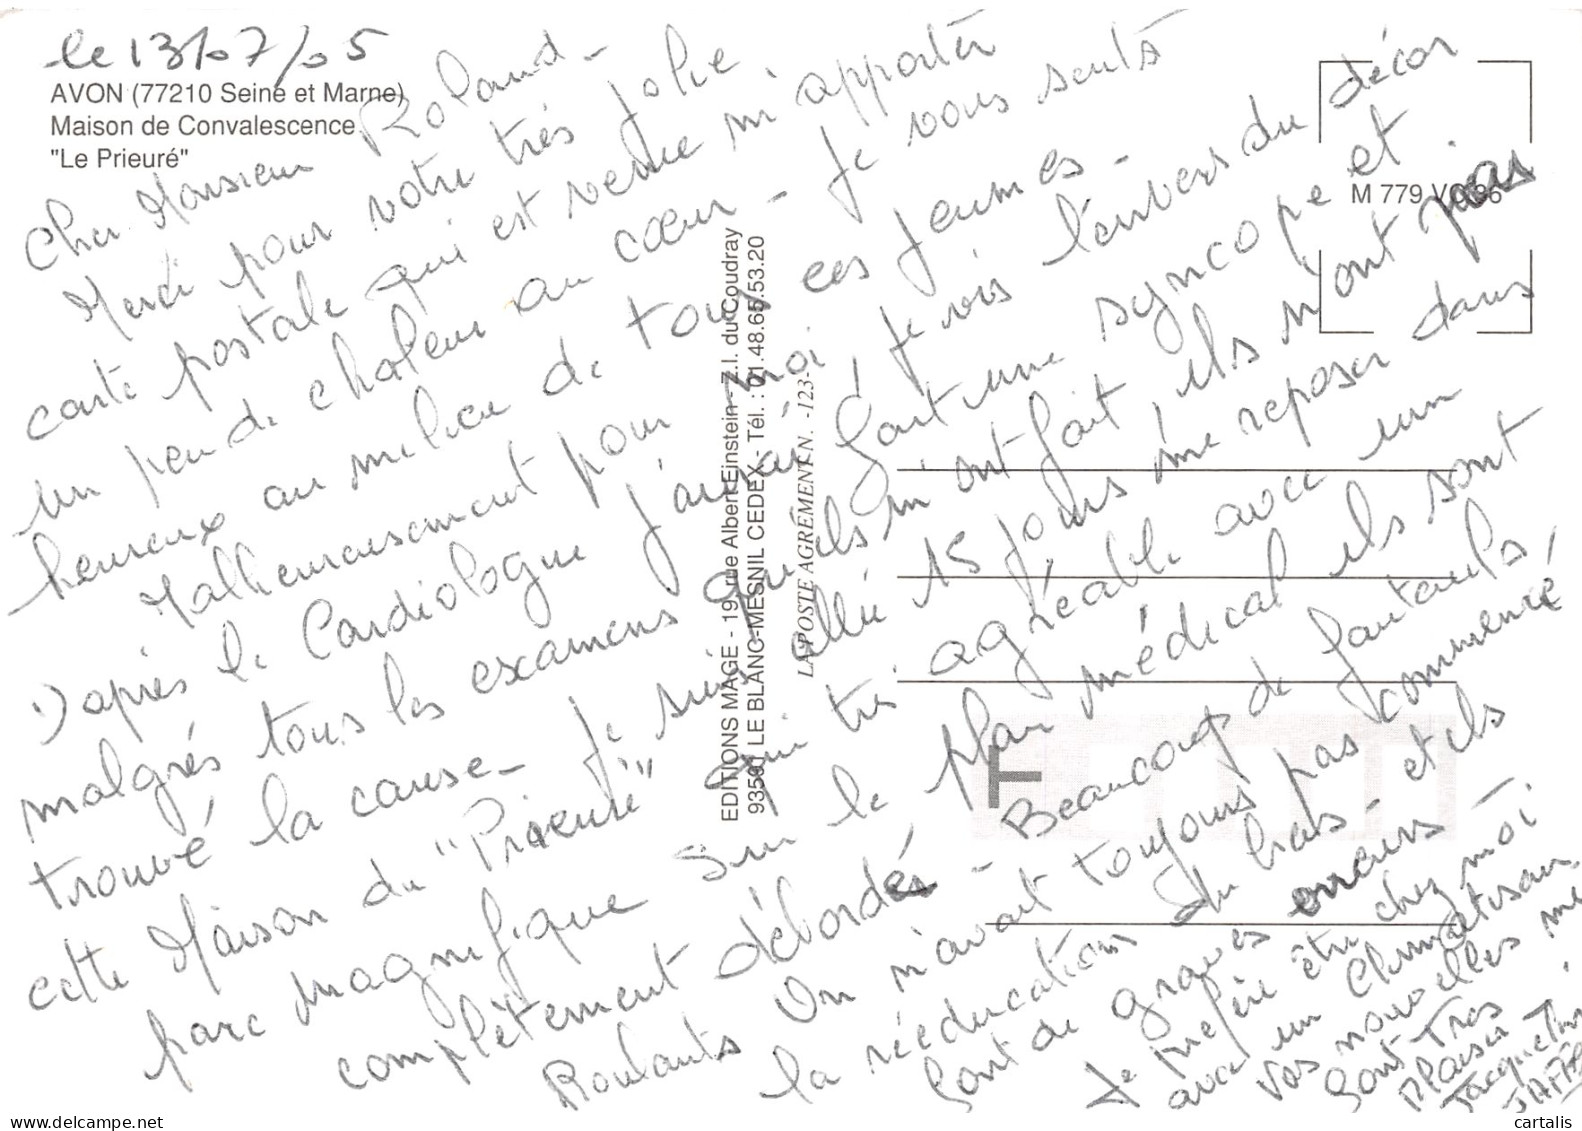 le 13/07/05
AVON (77210 Seine et Marne)
Maison de Convalescence
"Le Prieuré"
Cher Monsieur Roland -
Merci pour votre très jolie
carte postale qui est venue m'apporter
un peu de chaleur au cœur - Je vous sents
heureux au milieu de tous ces jeunes -
Malheureusement pour moi je vis l'envers du décor
D'après le Cardiologue j'aurai fait une syncope et
malgrés tous les examens qu'ils m'ont fait, ils n'ont pas
trouvé la cause - Je suis allée 15 jours me reposer dans
cette Maison du "Prieuré" qui très agréable avec un
parc magnifique sur le plan médical ils sont
complètement débordés - Beaucoup de fauteuils
Roulants On n'avait toujours pas commencé
la rééducation du bras - et ils
font de graves erreurs -
Je préfère être chez moi
avec un Climatiseur
Vos nouvelles me
font Très
Plaisir
EDITIONS MAGE - 19, rue Albert Einstein - Z.I. du Coudray
93591 LE BLANC-MESNIL CEDEX - Tél. : 01.48.65.53.20
LA POSTE AGRÉMENT N. -123-
M 779
F
cartalis